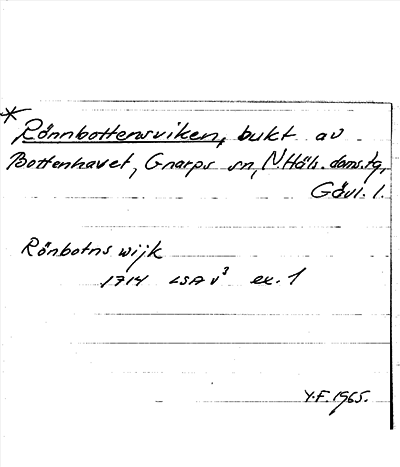 * Rönnbottensviken, bukt av
Bottenhavet, Gnarps sn, N.Häls. doms.tg,
Gävl. l.
Rönbotns wijk
1714 LSA v³ ex. 1
Y.F. 1965.